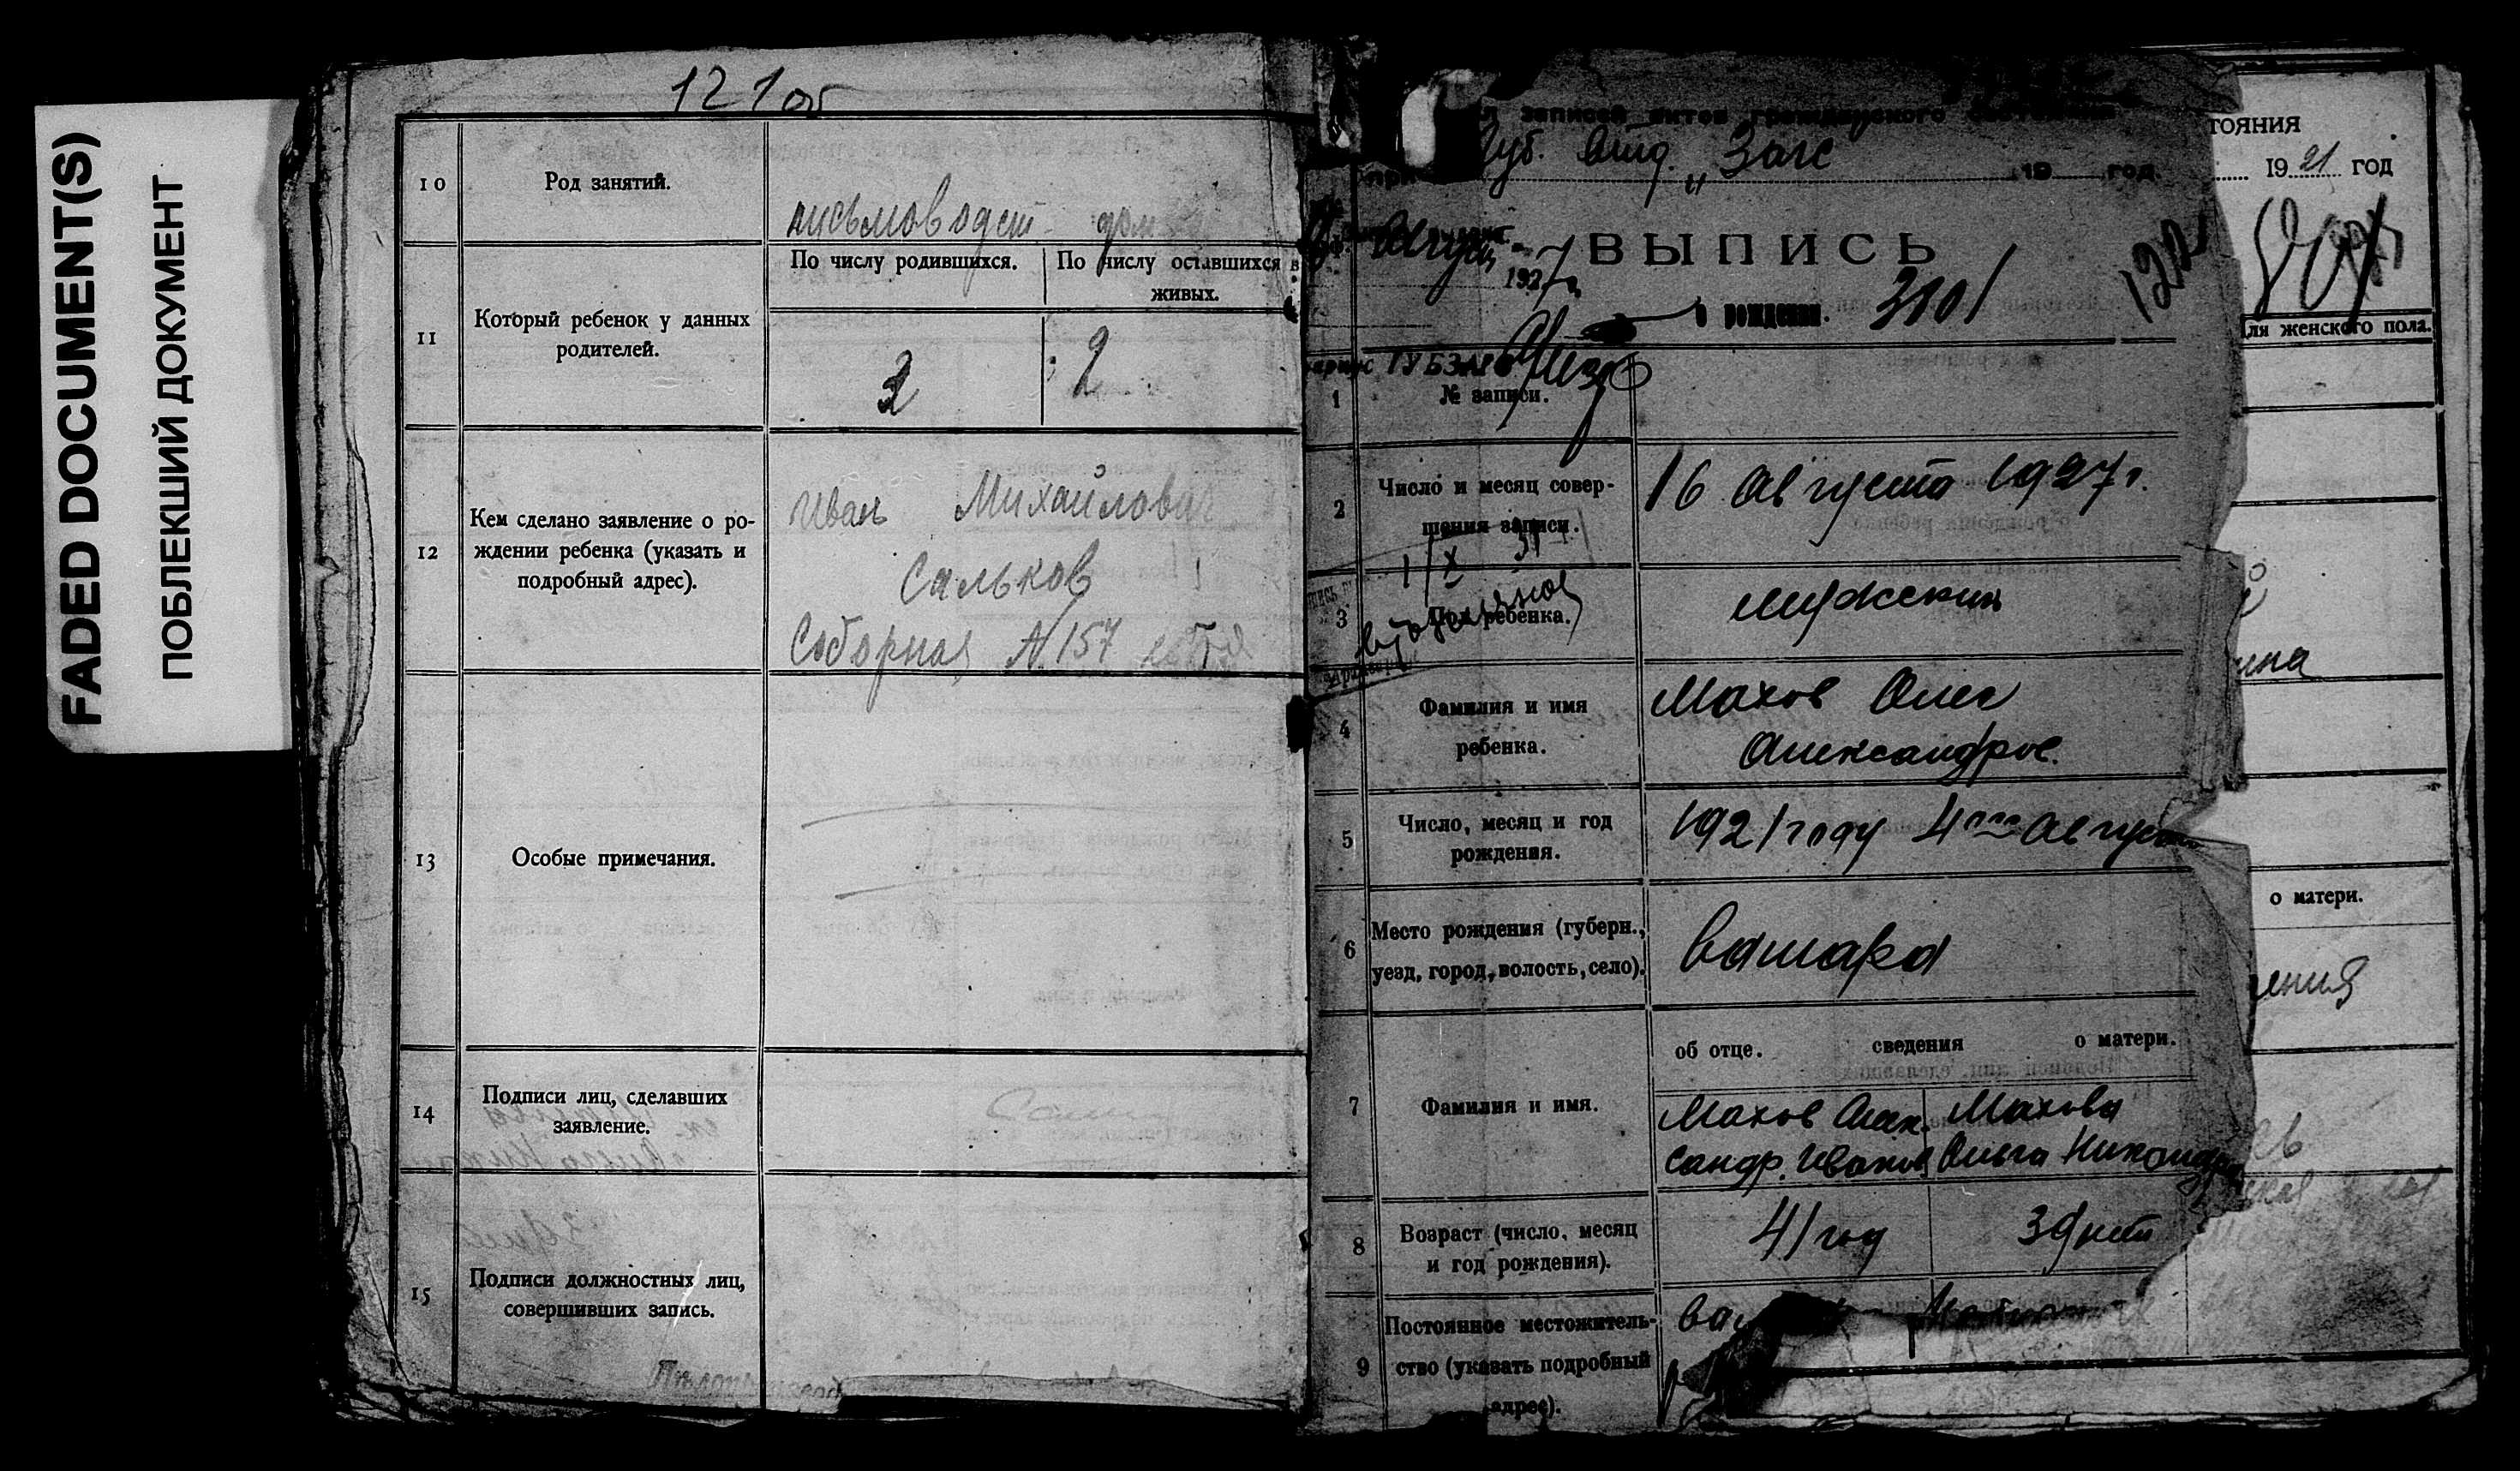 FADED DOCUMENT(S)
ПОБЛЕКШИЙ ДОКУМЕНТ
121об
10
Род занятий.
письмоводст.
11
Который ребенок у данных
родителей.
По числу родившихся.
По числу оставшихся в
живых.
2
2
12
Кем сделано заявление о ро-
ждении ребенка (указать и
подробный адрес).
Иван Михайлович
Сальков
Соборная N 157
13
Особые примечания.
14
Подписи лиц, сделавших
заявление.
15
Подписи должностных лиц,
совершивших запись.
записей актов гражданского состояния
Губ. Отд. „Загс
при
19 год.
122
Август
1927 г.
ВЫПИСЬ
о рождении.
3101
ГУБЗАГС
1
№ записи.
2
Число и месяц совер-
шения записи.
16 Августа 1927 г.
1/X 31
3
Пол ребенка.
мужской
4
Фамилия и имя
ребенка.
Махов Олег
Александров.
5
Число, месяц и год
рождения.
1921 году 4го Августа
6
Место рождения (губерн.,
уезд, город, волость, село).
7
Фамилия и имя.
об отце. сведения о матери.
Махов Алек-
сандр. Иванов
Махова
Ольга Никандр
8
Возраст (число, месяц
и год рождения).
41 год
39 лет
9
Постоянное местожитель-
ство (указать подробный
адрес).
тояния
1921 год
для женского пола.
ина
о матери.
ения